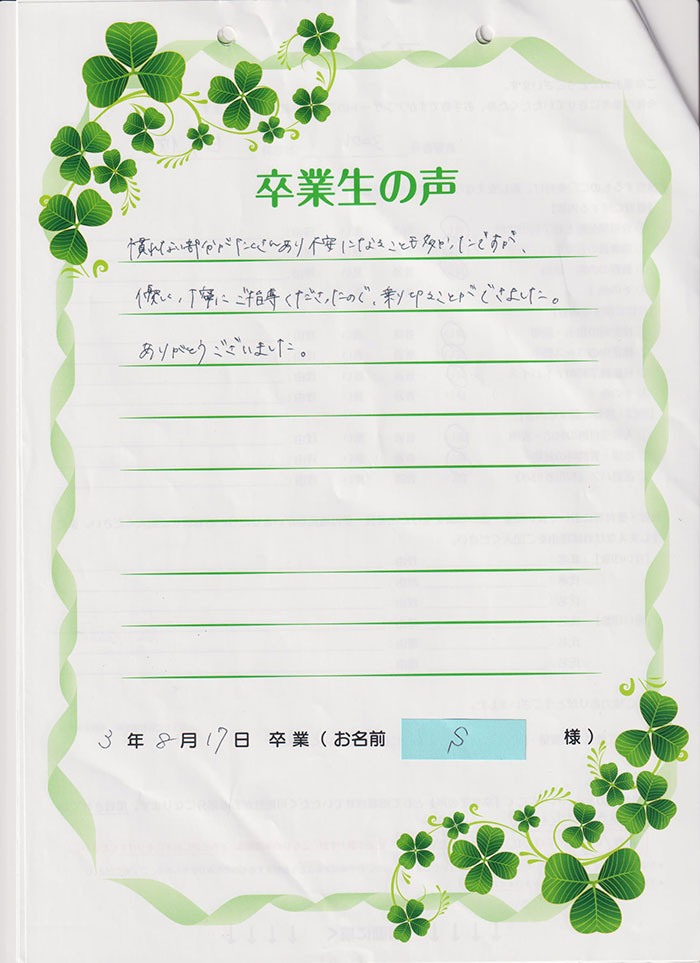 卒業生の声
慣れない部分がたくさんあり不安になることも多かったですが、
優しく丁寧にご指導くださったので、乗り切ることができました。
ありがとうございました。
3年8月17日 卒業(お名前 S 様)